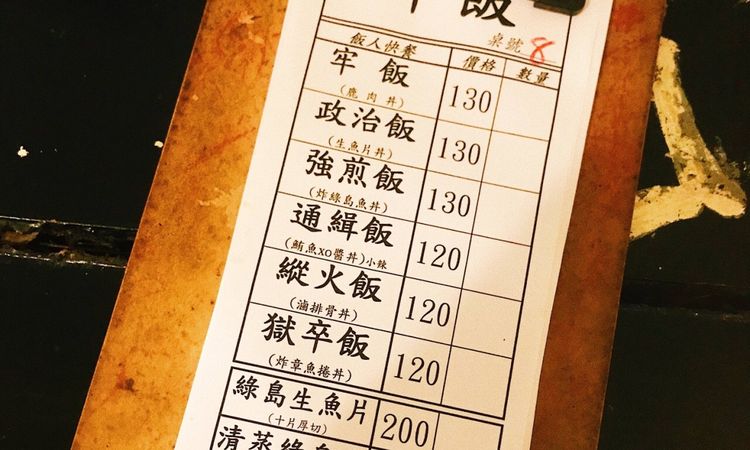 飯
桌號 8
飯人快餐 價格 數量
牢飯 130
(鹿肉丼)
政治飯 130
(生魚片丼)
強煎飯 130
(炸綠島魚丼)
通緝飯 120
(鮪魚XO醬丼)小辣
縱火飯 120
(滷排骨丼)
獄卒飯 120
(炸章魚捲丼)
綠島生魚片 200
(十片厚切)
清蒸綠島